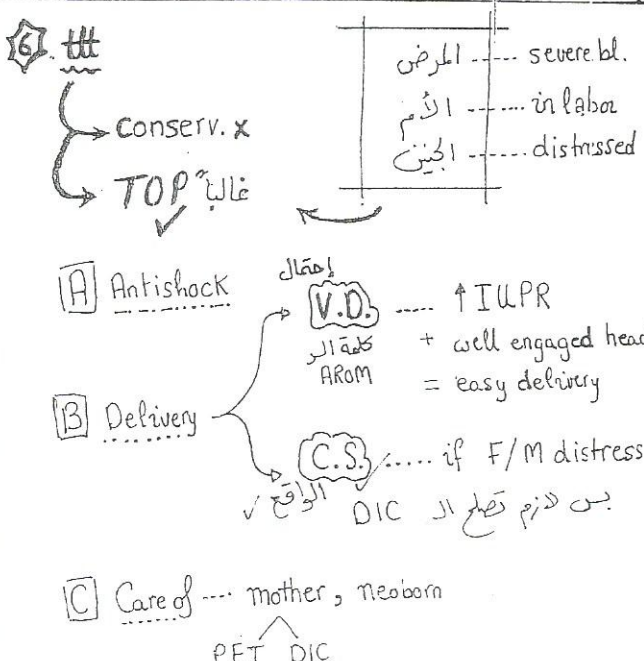 6 ttt
المرض ----- severe bl.
الأم ------ in labor
الجنين ------ distressed
conserv. x
TOP "غالبا" ✓
A Antishock
إحتمال
V.D. ---- ↑IUPR
كلمة الـ + well engaged head
AROM = easy delivery
B Delivery
C.S. ✓..... if F/M distress
✓ الواقع
بس لازم تصلح الـ DIC
C Care of ---- mother, neoborn
PET DIC